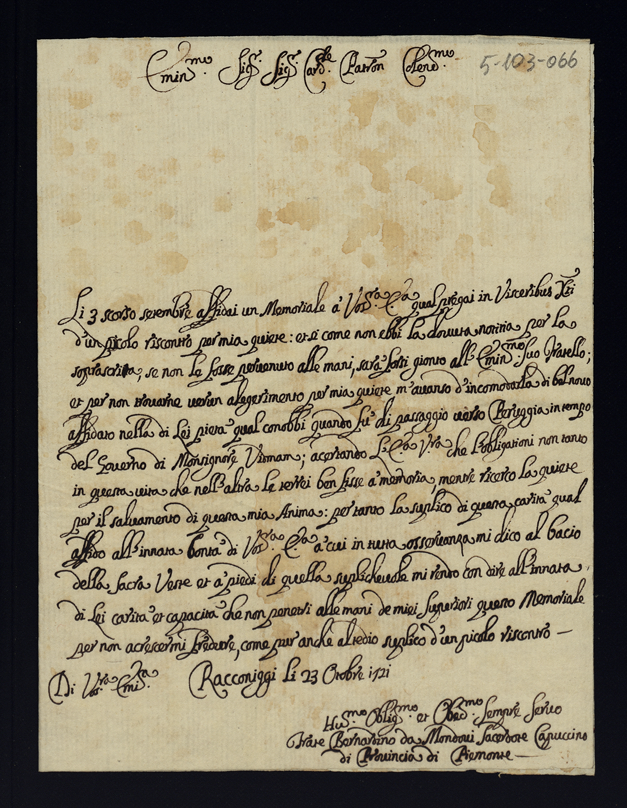 Emin.mo Sig.r Sig.r Card.le Patron Colend.mo
5-103-066
Li 3 scorso settembre affidai un Memoriale à Vos.ra E.za qual pregai in Visceribus Xti
d'un picolo riscontro per mia quiete: et si come non ebbi la dovuta notitia per la
soprascritta, se non le fosse pervenuto alle mani, sarà forsi gionto all' Emin.mo suo Fratello;
et per non trovarne verun alegerimento per mia quiete m'avanso d'incomodarla di bel nuovo
affidato nella di Lei pietà qual conobbi quando fù di passaggio verso Peruggia in tempo
del Governo di Monsignore; acertando L'E.za V.ra che l'obligationi non tanto
in questa vita che nell'altra le terrei ben fisse à memoria, mentre ricerco la quiete
per il salvamento di questa mia Anima: per tanto la suplico di questa carità qual
affido all'innata bontà di Vos.ra E.za à cui in tutta osservanza mi dico al bacio
della sacra Veste et à piedi di quella suplichevole mi rendo con dire all'innata
di Lei carità et capacità che non penetri alle mani de miei Superiori questo Memoriale
per non acrescermi, come pur anche al tedio suplico d'un picolo riscontro —
Di Vos.ra Emi.za Racconiggi Li 23 Ottobre 1721
Hu.mo Oblig.mo et Obed.mo sempre Servo
Frate Bernardino da Mondovi Sacerdote Capuccino
di Provincia di Piemonte —